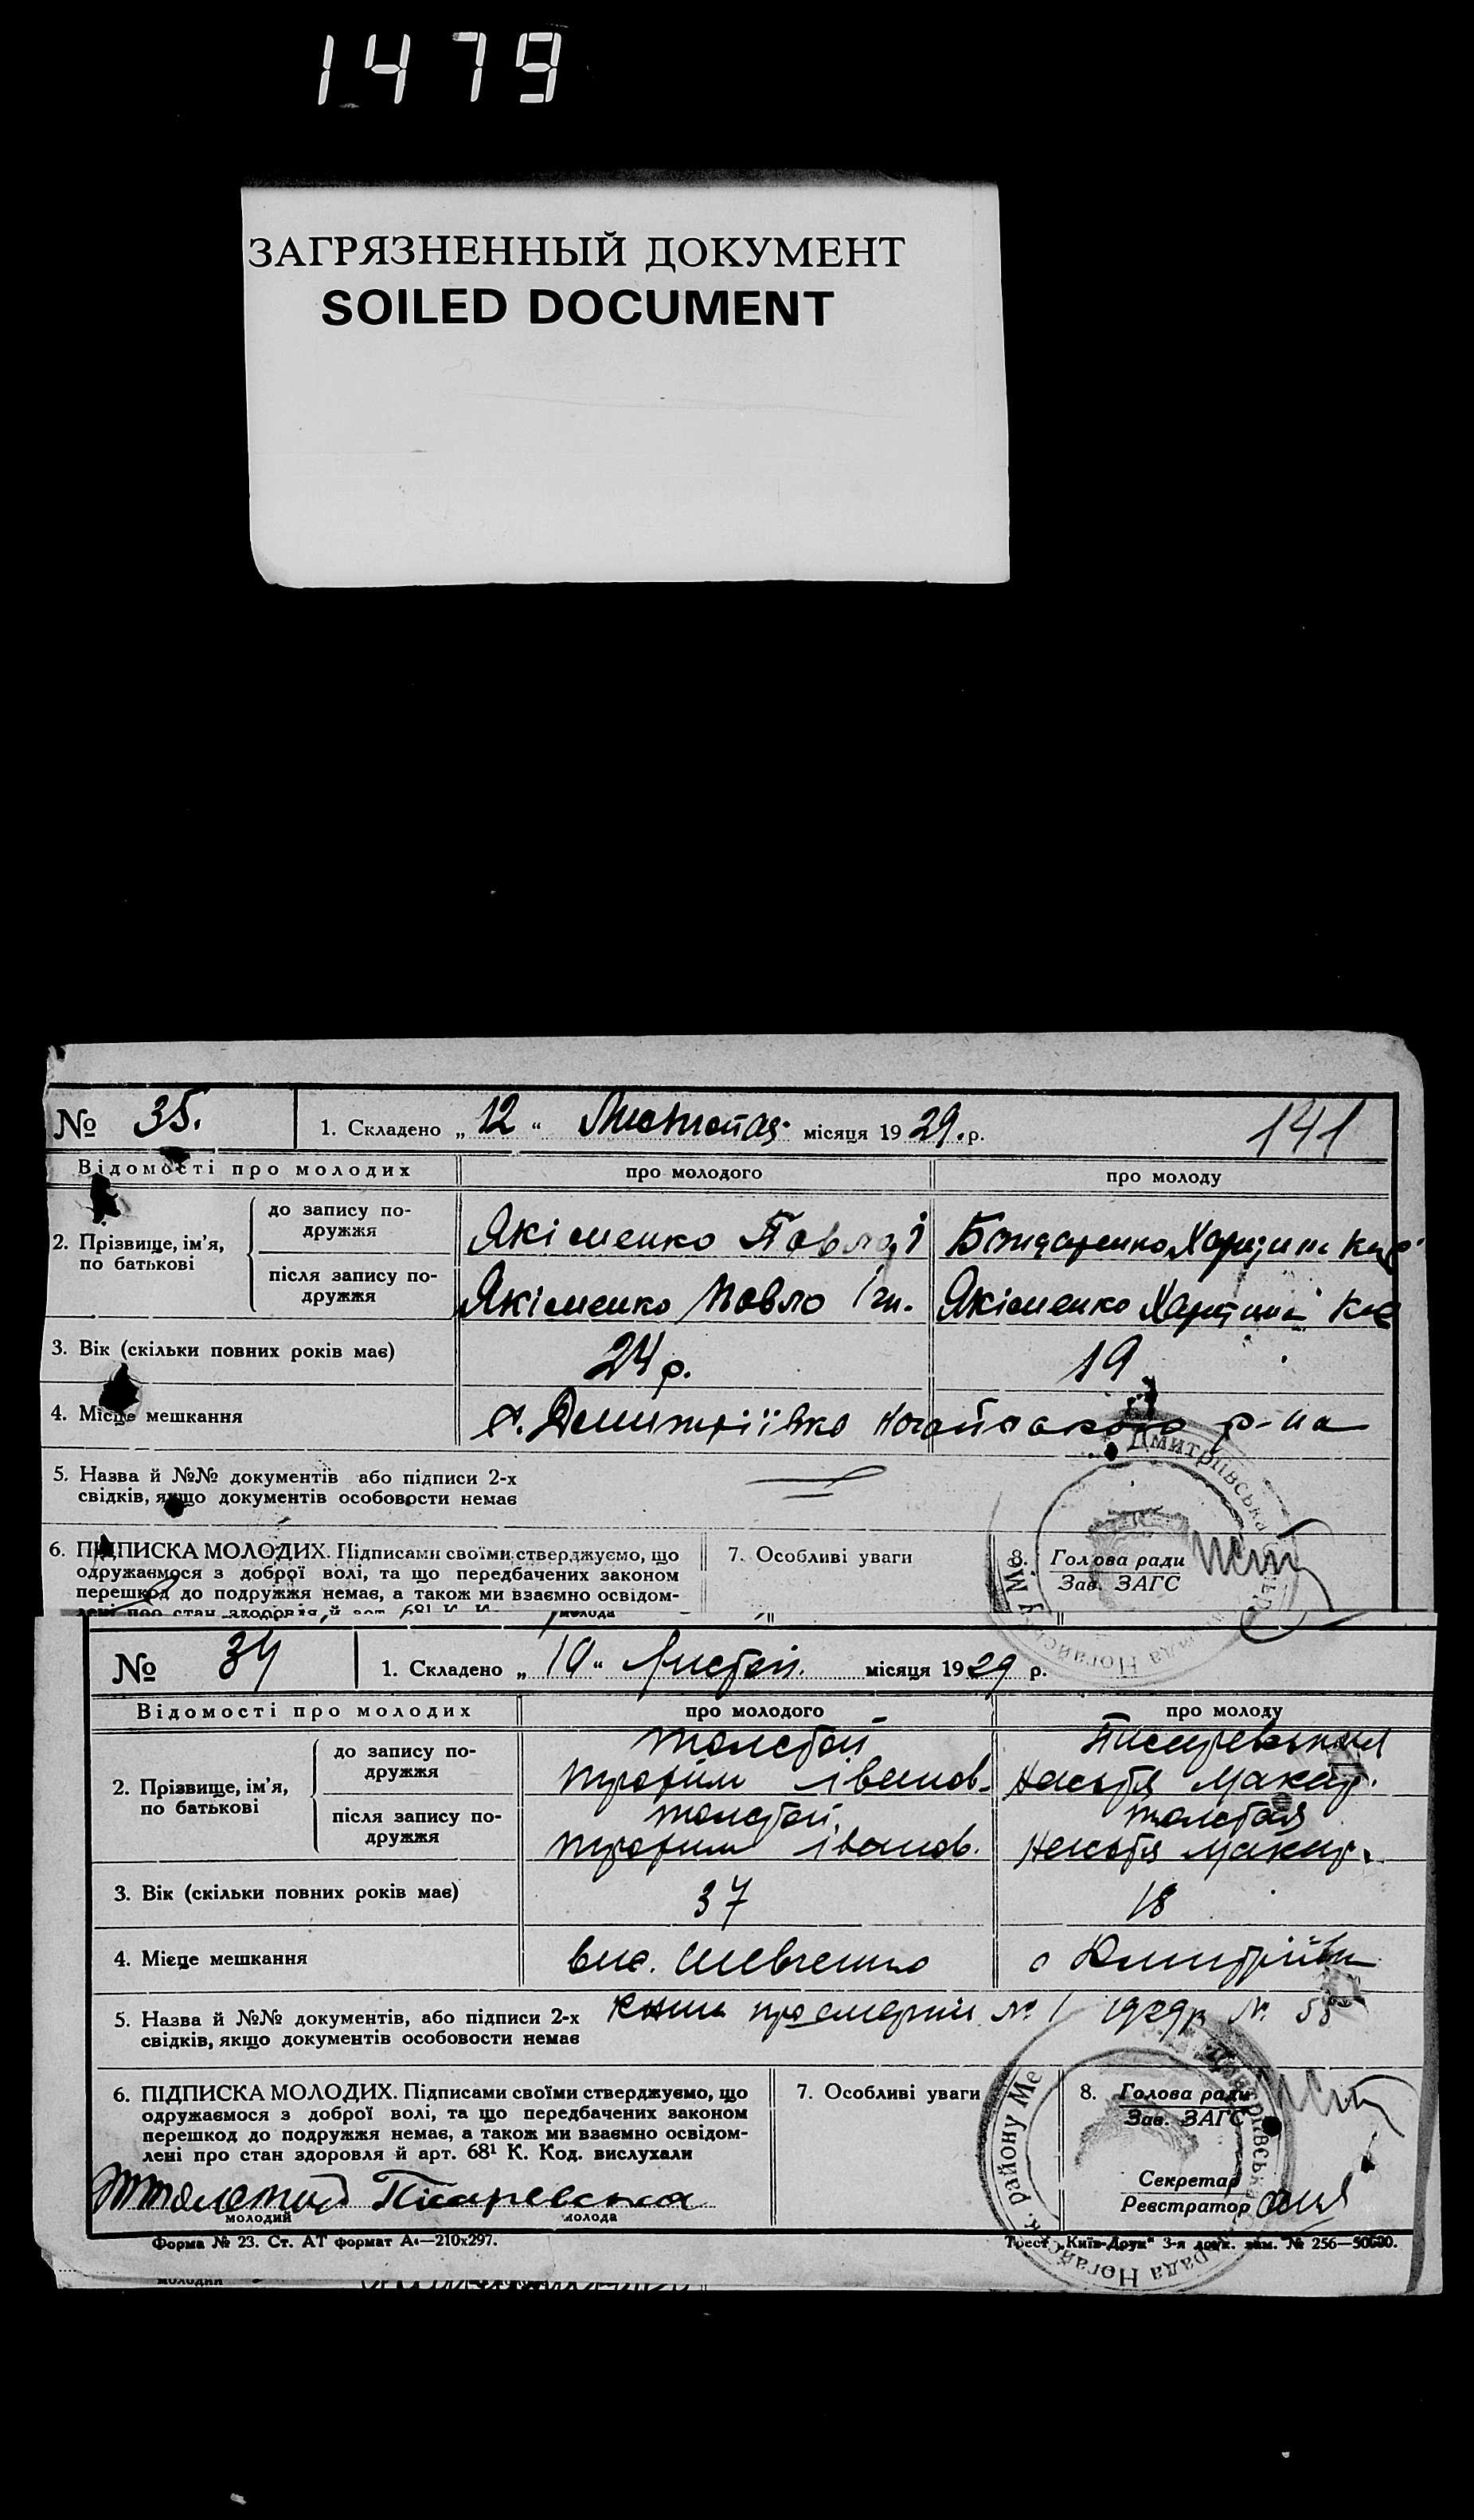 1479
ЗАГРЯЗНЕННЫЙ ДОКУМЕНТ
SOILED DOCUMENT
№ 35. 1. Складено „ 12 “ Листопад. місяця 19 29. р. 141
Відомості про молодих про молодого про молоду
2. Прізвище, ім'я, по батькові
до запису по-
дружжя
Якіменко Павло Бондаренко
після запису по-
дружжя
Якіменко Павло Ігн. Якіменко
3. Вік (скільки повних років має) 24 р. 19
4. Місце мешкання с. Дмитріївка Ногайського р-на
5. Назва й №№ документів або підписи 2-х
свідків, якщо документів особовости немає
6. ПІДПИСКА МОЛОДИХ. Підписами своїми стверджуємо, що
одружаємося з доброї волі, та що передбачених законом
перешкод до подружжя немає, а також ми взаємно освідом-
лені про стан здоровія й арт. 68¹ К. К.
7. Особливі уваги
8. Голова ради
Зав. ЗАГС
Дмитріївська
рада Ногайськ
молода
№ 34 1. Складено „ 10 “ Листоп. місяця 19 29 р.
Відомості про молодих про молодого про молоду
2. Прізвище, ім'я,
по батькові
до запису по-
дружжя
Толстой Писаревська
Трофим Іванов. Настя Макар.
після запису по-
дружжя
Толстой Толстая
Трофим Іванов. Настя Макар.
3. Вік (скільки повних років має) 37 18
4. Місце мешкання вис. Шевченко с Дмитріївк
5. Назва й №№ документів, або підписи 2-х
свідків, якщо документів особовости немає
про смерти № 1 1929 р №
6. ПІДПИСКА МОЛОДИХ. Підписами своїми стверджуємо, що
одружаємося з доброї волі, та що передбачених законом
перешкод до подружжя немає, а також ми взаємно освідом-
лені про стан здоровля й арт. 68¹ К. Код. вислухали
Толстой Писаревська
молодий молода
7. Особливі уваги
8. Голова ради
Зав. ЗАГС
Секретар
Реєстратор
Дмитріївська
рада Ногайськ. району Ме
Форма № 23. Ст. АТ формат А₄—210х297.
Трест „Київ-Друк“ 3-я друк. зам. № 256—50000.
молодий